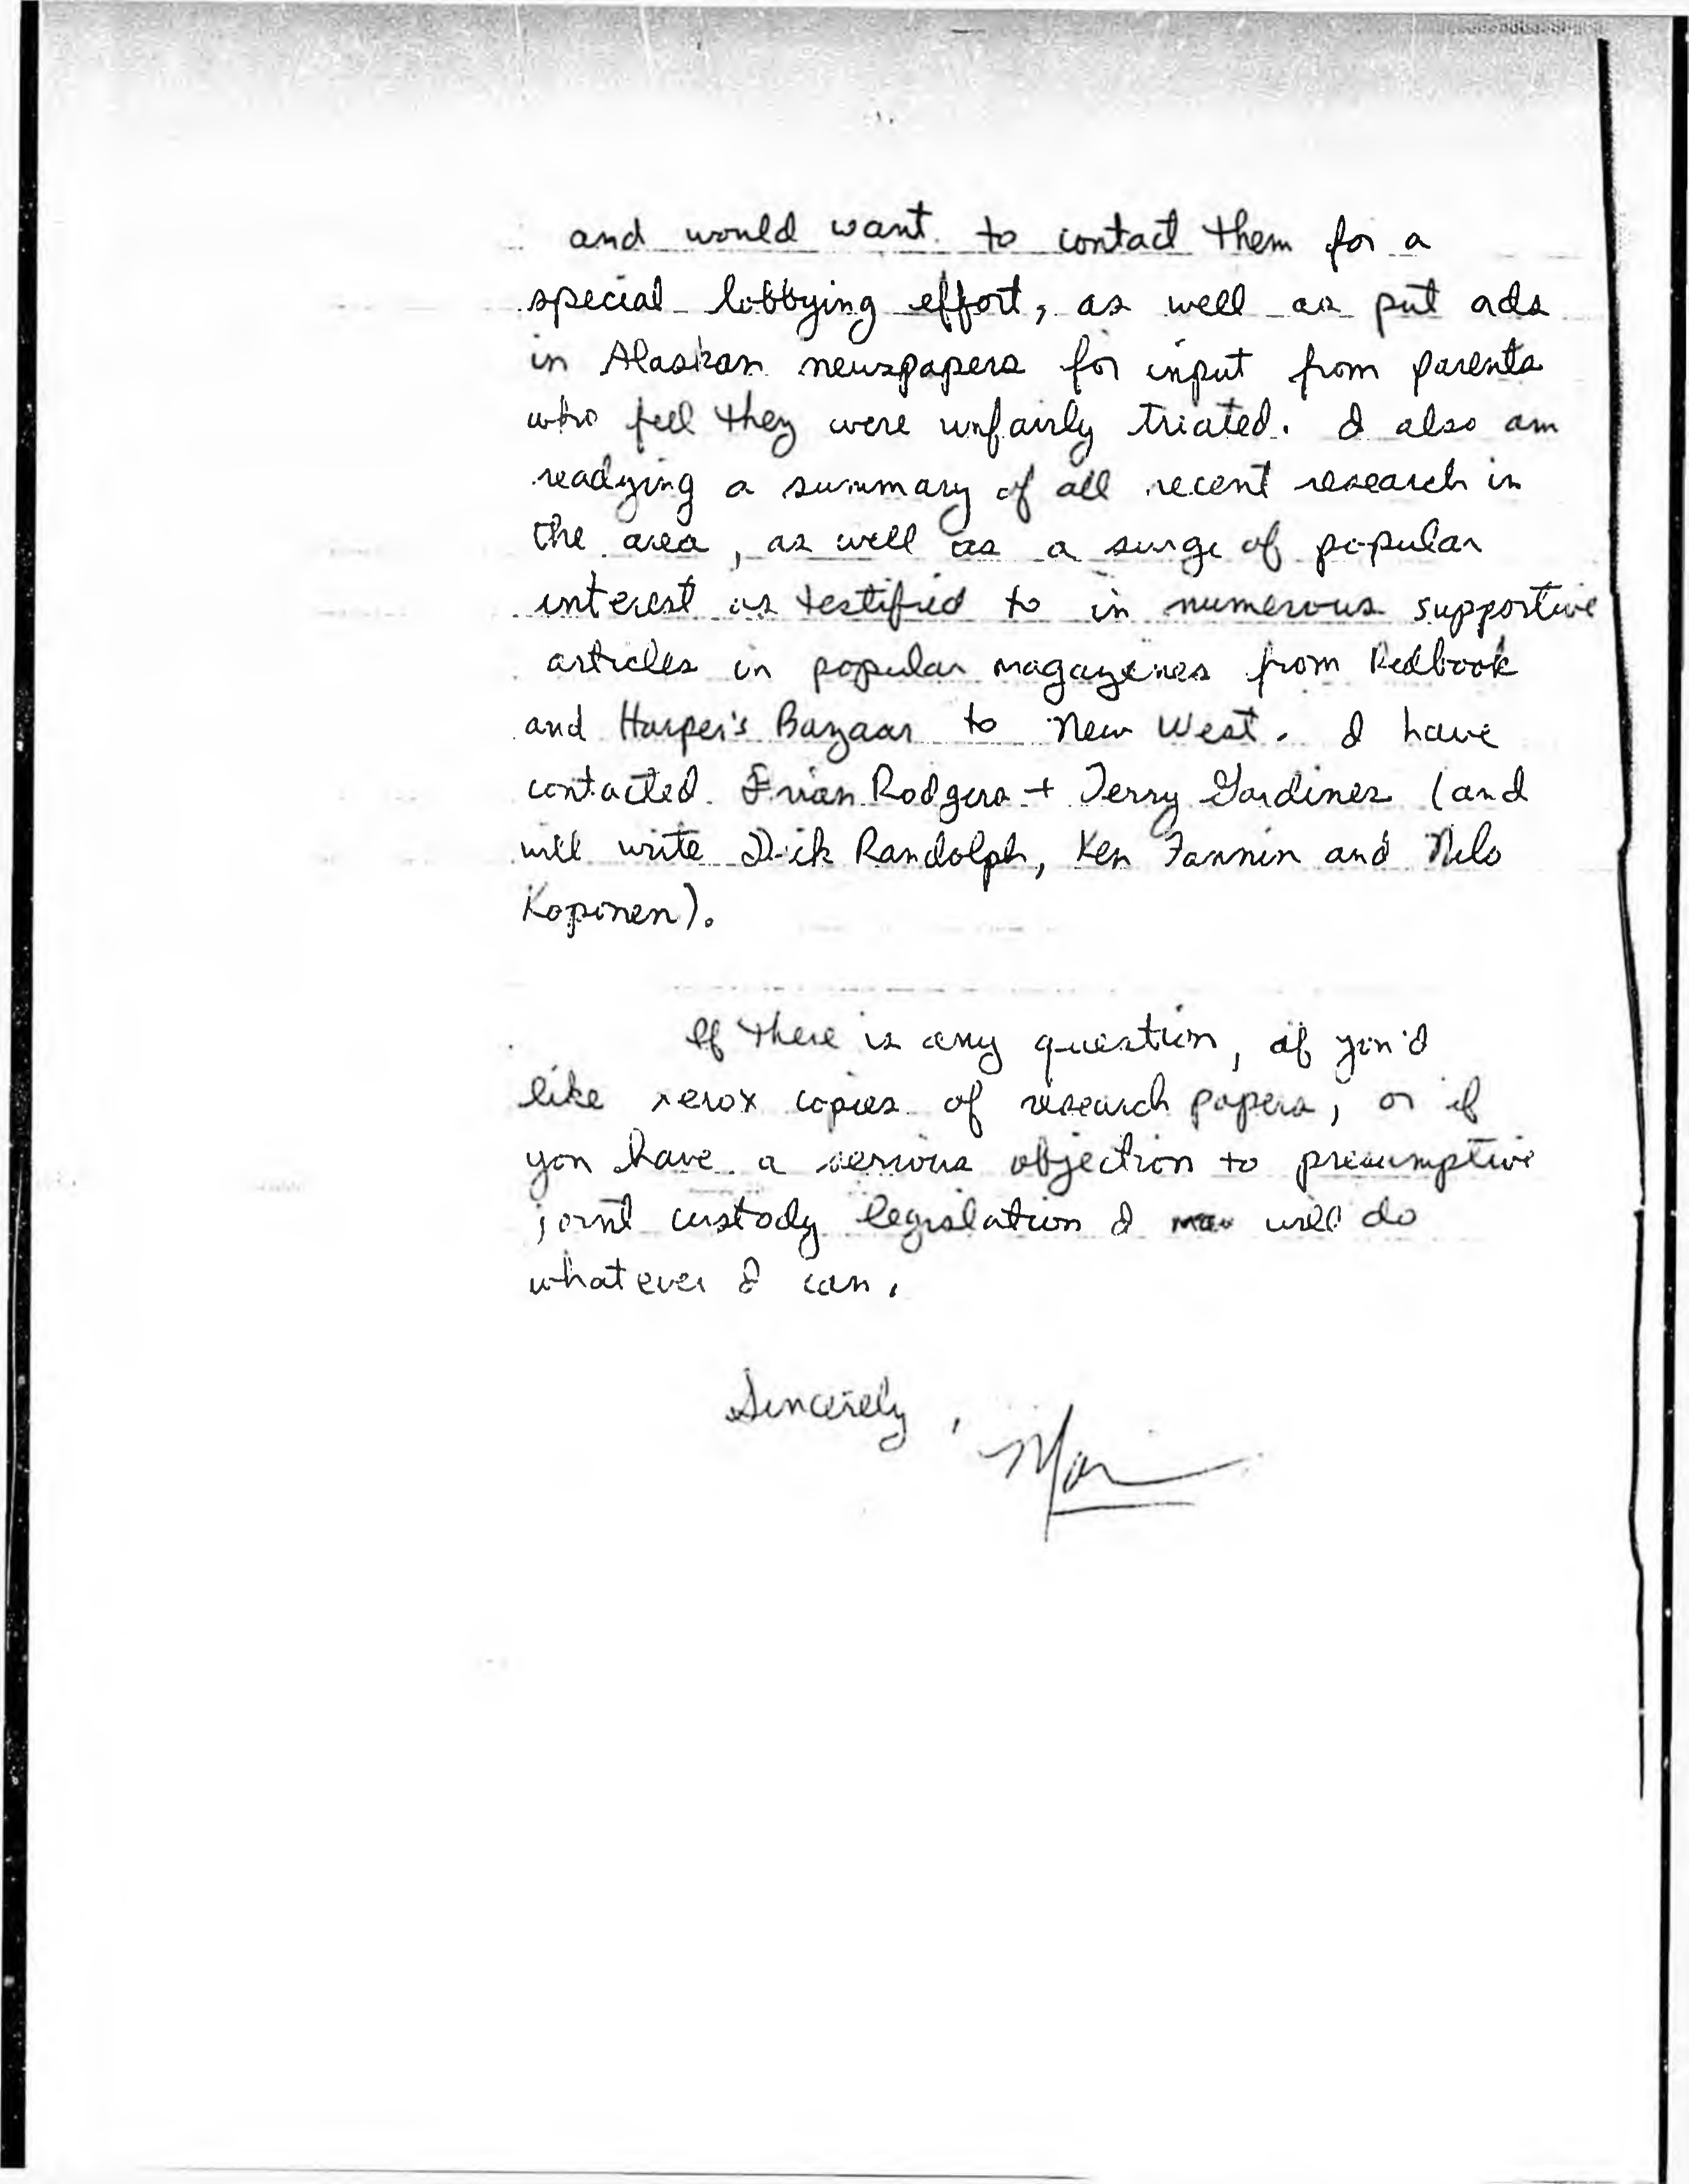 and would want to contact them for a
special lobbying effort, as well as put ads
in Alaskan newspapers for input from parents
who feel they were unfairly triated. I also am
readying a summary of all recent research in
the area, as well as a surge of popular
interest as testified to in numerous supportive
articles in popular magazines from Redbook
and Harper's Bazaar to New West. I have
contacted Rodgers + Terry Gardiner (and
will write Dick Randolph, Ken Fannin and Nilo
Koponen).
If there is any question, if you'd
like xerox copies of research papers, or if
you have a serious objection to presumptive
joint custody legislation I will do
whatever I can.
Sincerely,